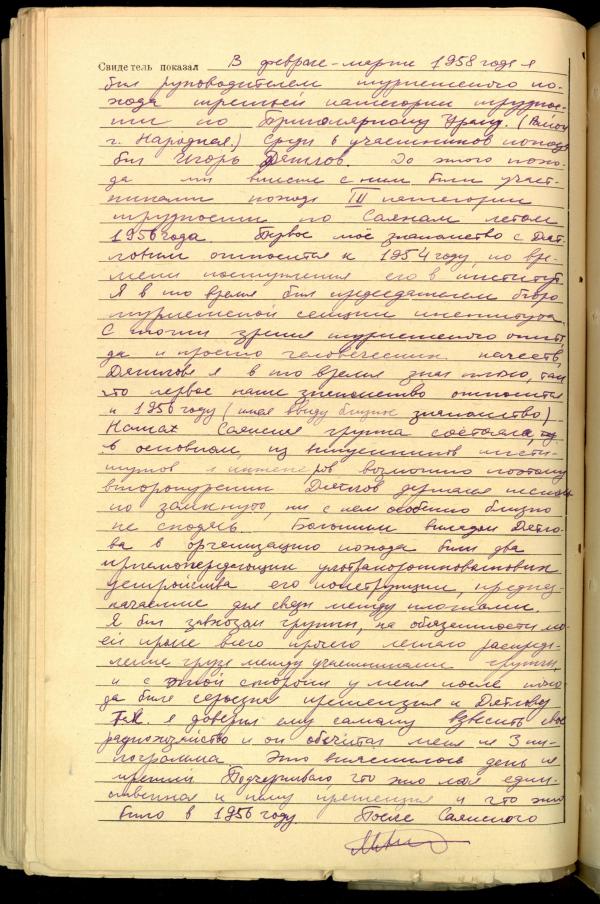 Свидетель показал В феврале-марте 1958 года я
был руководителем туристского по-
хода третьей категории труднос-
ти по Приполярному Уралу. (Район
г. Народная.) Среди 6 участников похода
был Игорь Дятлов. До этого похо-
да мы вместе с ним были участ-
никами похода III категории
трудности по Саянам летом
1956 года. Первое моё знакомство с Дят-
ловым относится к 1954 году, ко вре-
мени поступления его в институт
Я в то время был председателем бюро
туристской секции института.
С точки зрения туристского опыт,
да и просто человеческих качеств,
Дятлова я в то время знал плохо, так
что первое наше знакомство относится
к 1956 году (имея ввиду близкое знакомство)
Наша Саянская группа состояла,
в основном, из выпускников инсти-
тутов и инженеров возможно поэтому
второкурсник Дятлов держался несколь
ко замкнуто, ни с кем особенно близко
не сходясь. Большим вкладом Дятло-
ва в организацию похода были два
приемопередающих ультракоротковолновых
устройства его конструкции, предназ-
начаемые для связи между плотами.
Я был завхозом группы, на обязанности мо-
ей кроме всего прочего лежало распреде-
ление груза между участниками группы,
и с этой стороны у меня после похо-
да была серьезная претензия к Дятлову
т.к. я доверил ему самому взвесить свое
радиохозяйство и он обсчитал меня на 3 ки-
лограмма. Это выяснилось день на
третий Подчеркиваю, что это моя един-
ственная к нему претензия и что это
было в 1956 году. После Саянского